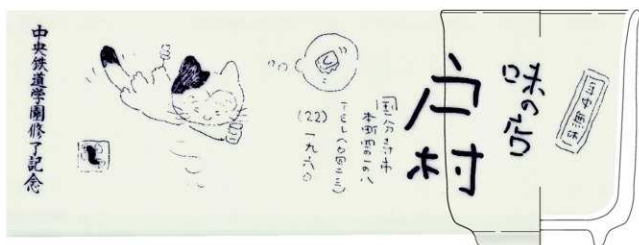 年中無休
味の店
戸村
国分寺市
本町の一の八
TEL(〇四二三)
(22)一九六〇
中央鉄道学園修了記念